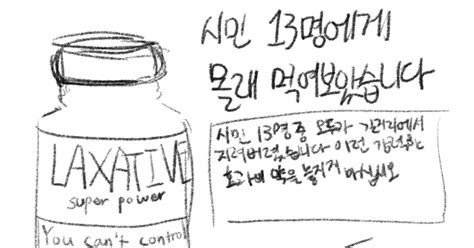 시민 13명에게
몰래 먹여보았습니다
시민 13명 중 모두가 길거리에서
지려버렸습니다 이런 강력한
효과의 약을 놓치지 마십시오
LAXATIVE
super power
You can't control